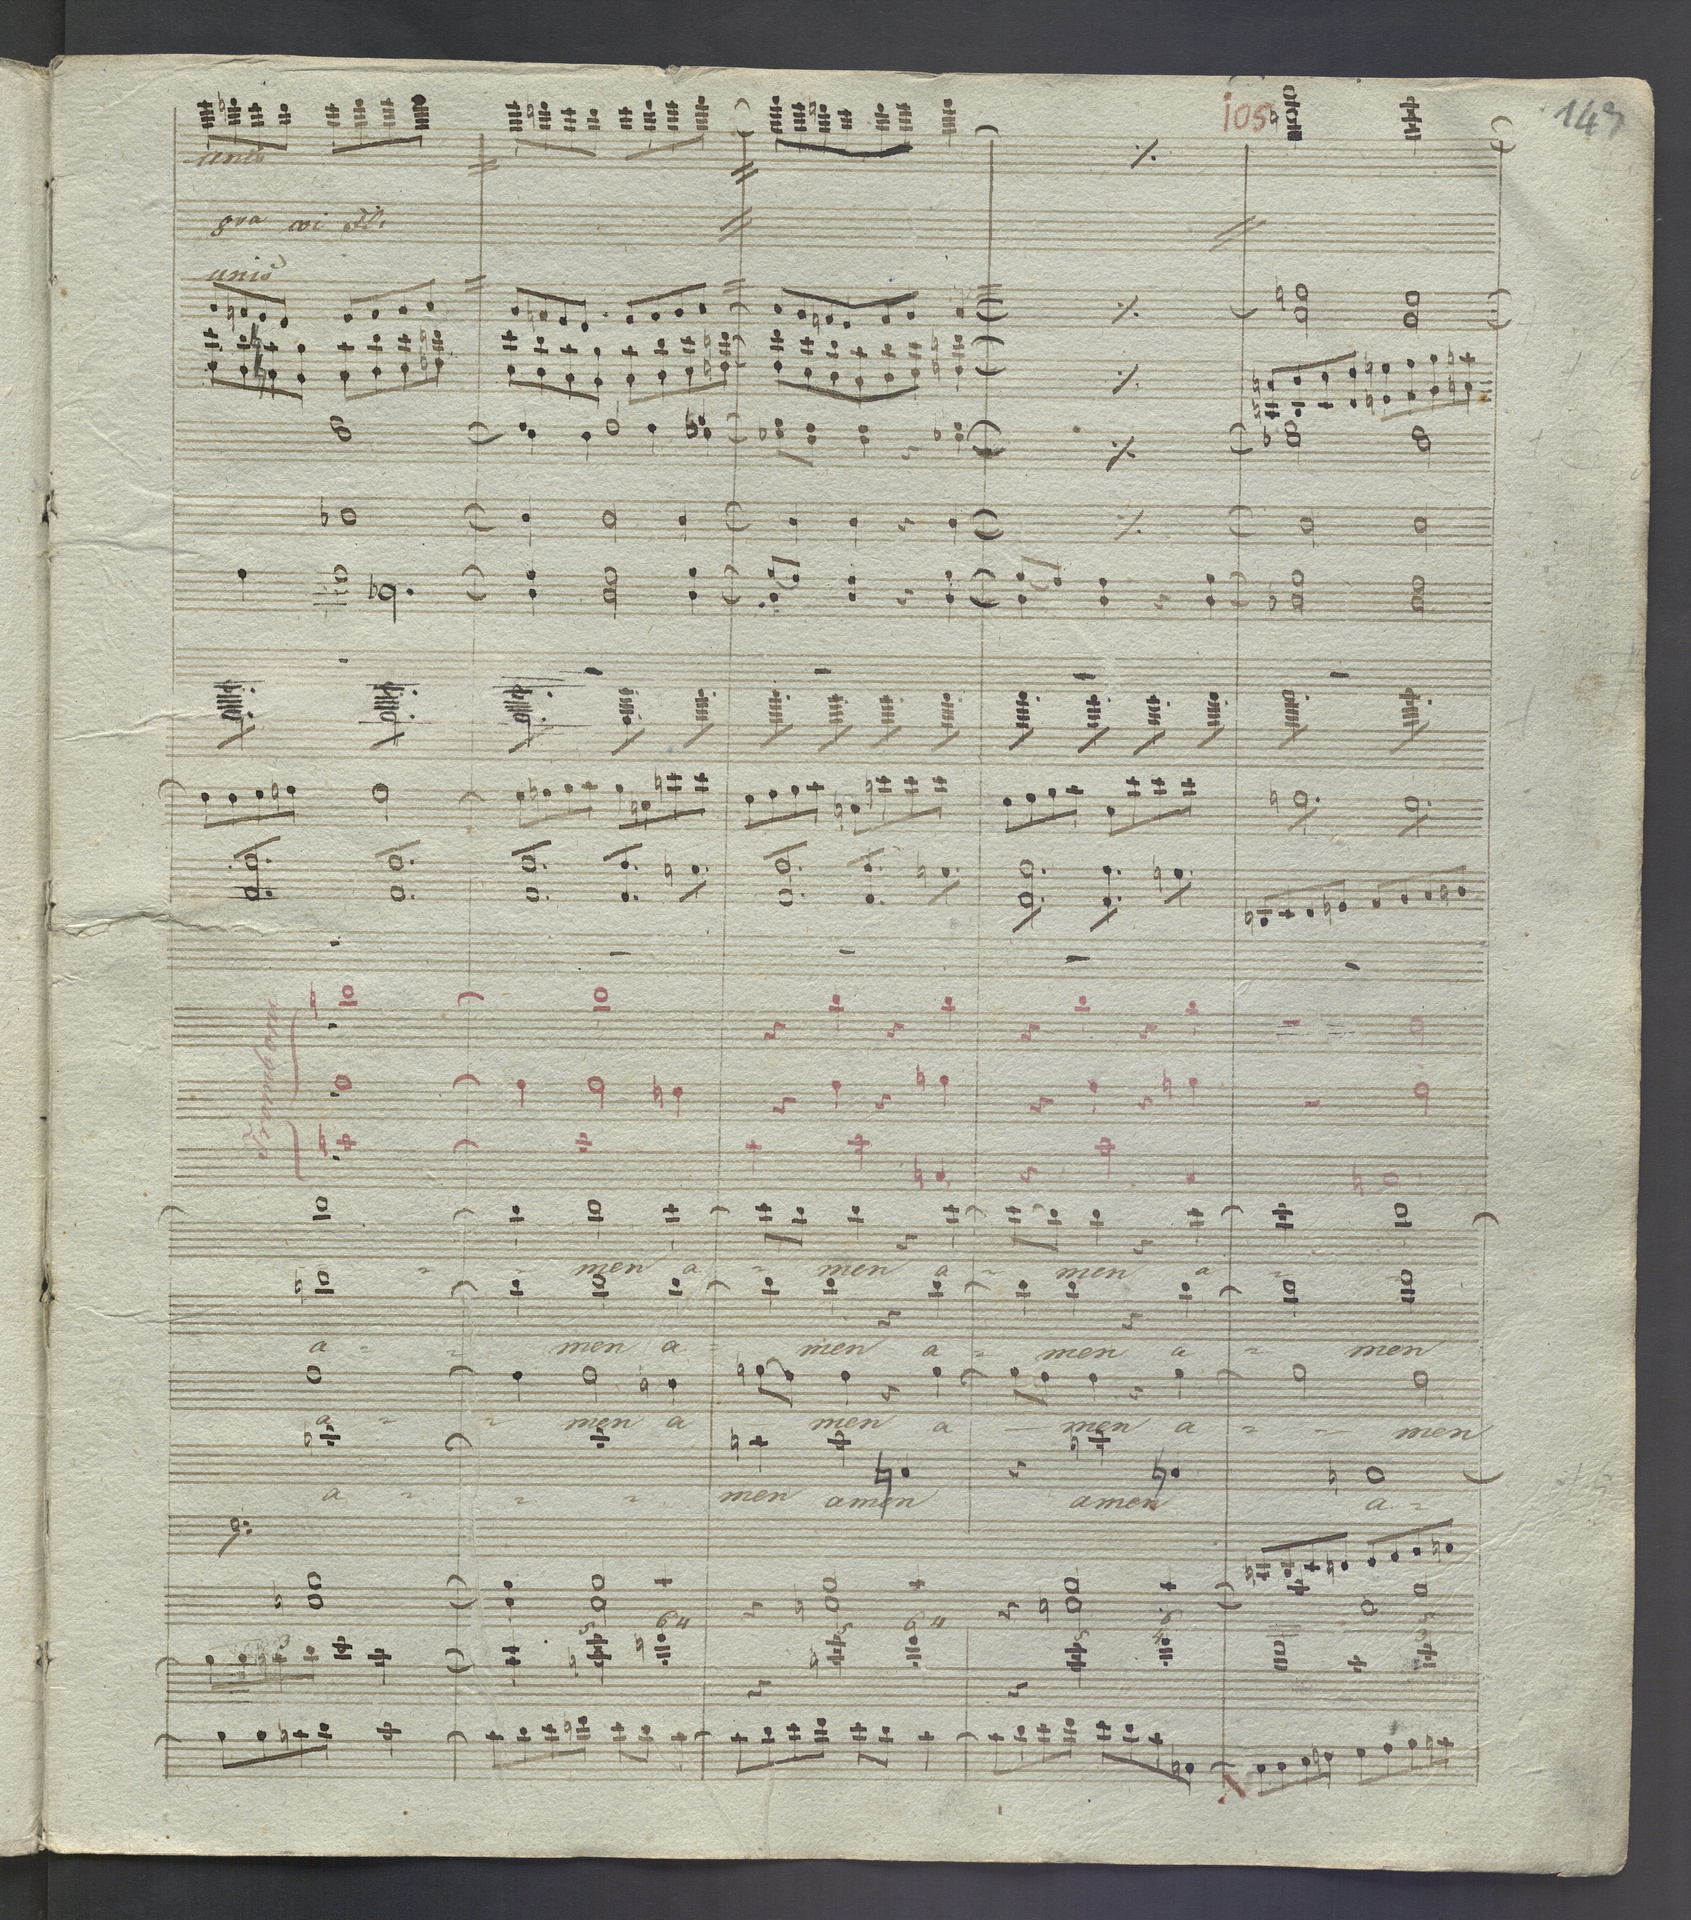 ios
147
unis
8va coi Fl.
unis
Tromboni
men a - men a - men a -
a - - men a - men a - men a - men
a - - men a men a - men a - - men
a - - - men amen amen a -
3
5 6 4 5 6 4 5